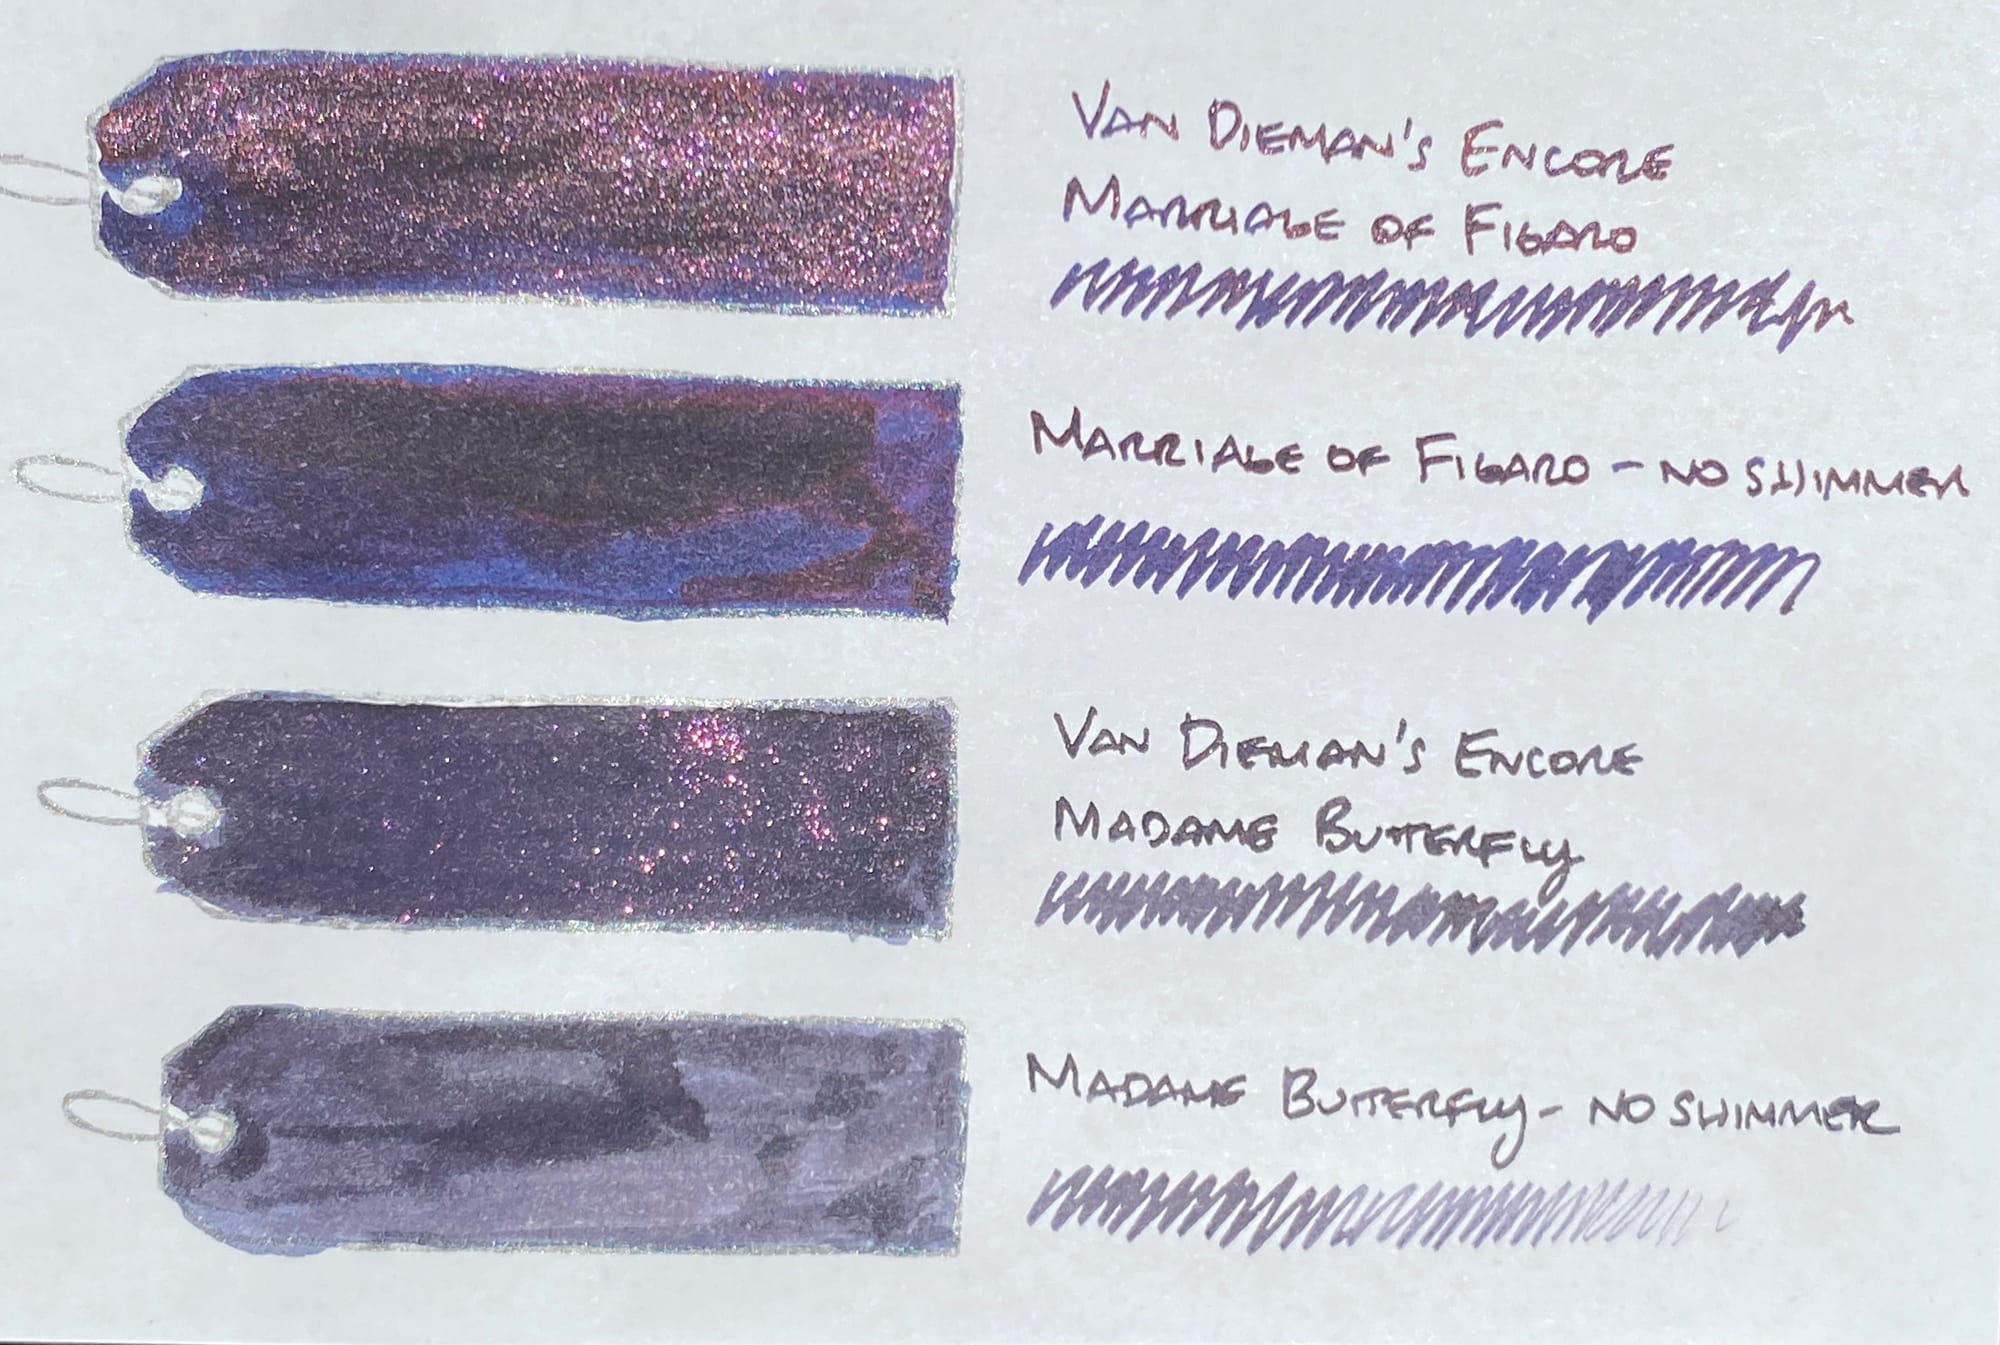 VAN DIEMAN'S ENCORE
MARRIAGE OF FIGARO
MARRIAGE OF FIGARO - NO SHIMMER
VAN DIEMAN'S ENCORE
MADAME BUTTERFLY
MADAME BUTTERFLY - NO SHIMMER